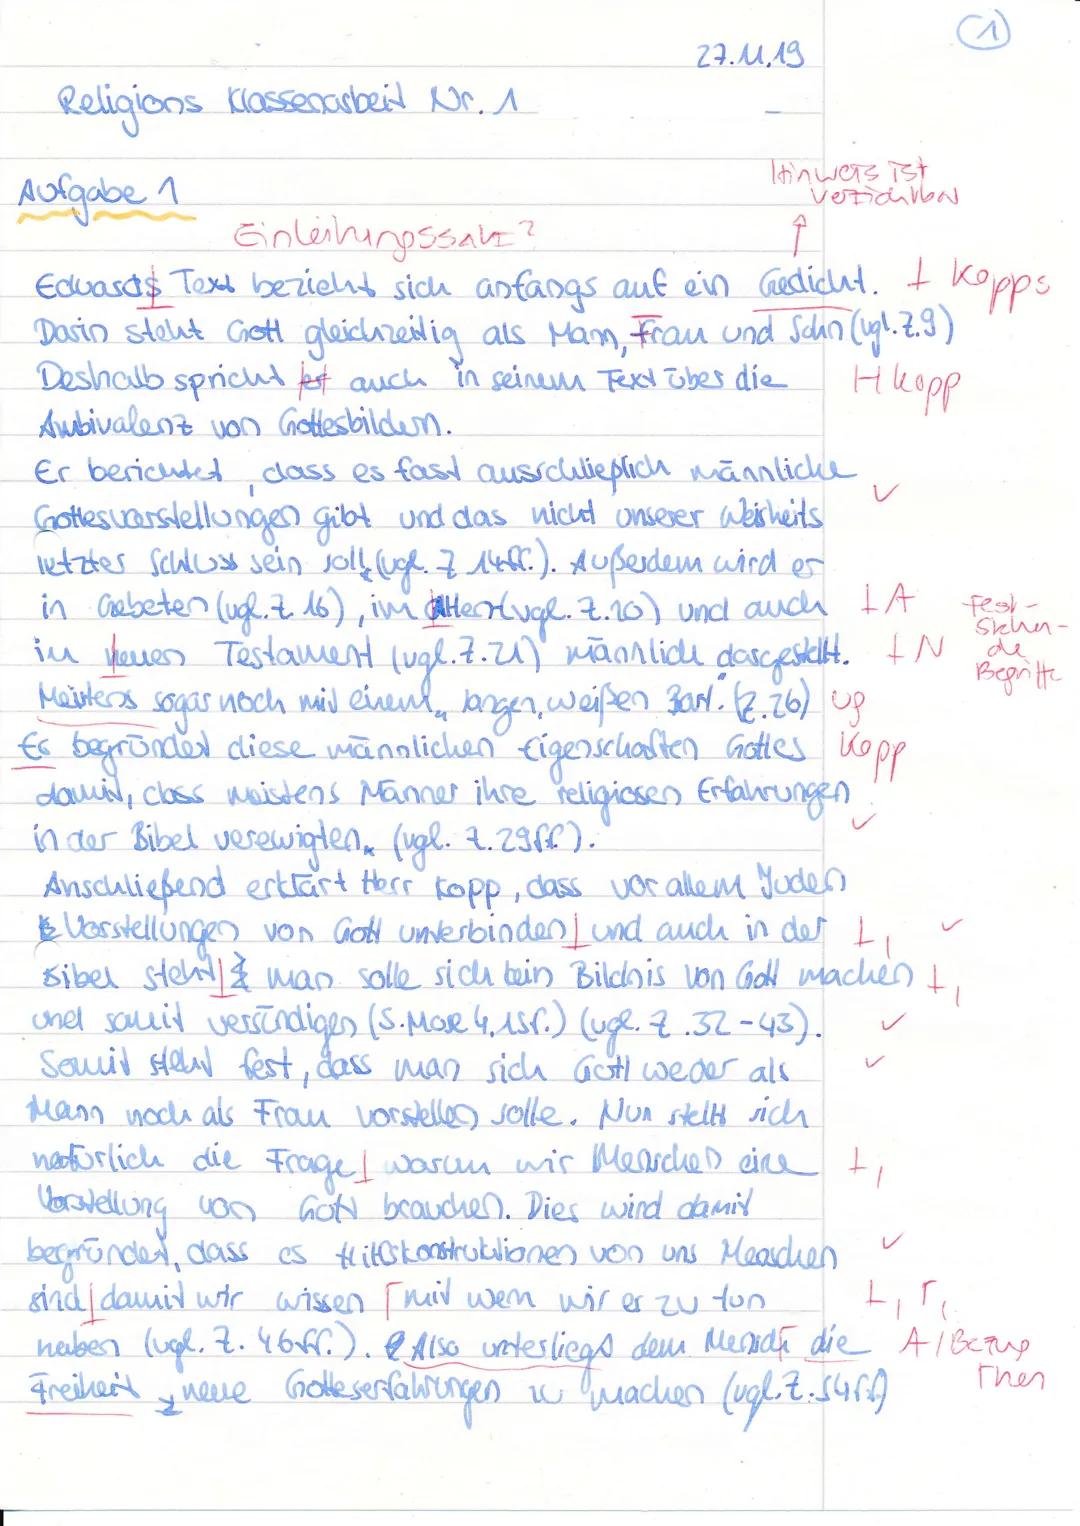 1
27.11.19
Religions Klassenarbeit Nr. 1
Hinweis ist
verzichtbar
Aufgabe 1
Einleitungssatz?
Eduards Text bezieht sich anfangs auf ein Gedicht. Kopps
Darin steht Gott gleichzeitig als Mann, Frau und Sohn (vgl. Z. 9)
Deshalb spricht er auch in seinem Text über die H kopp
Ambivalenz von Gottesbildern.
Er berichtet, dass es fast ausschließlich männliche
Gottesvorstellungen gibt und das nicht unserer Weisheits
letzter Schluss sein soll (vgl. Z 14ff.). Außerdem wird er
in Gebeten (vgl. Z. 16), im alten (vgl. Z. 20) und auch A
Fest-
stehen-
de
Begriffe
im neuen Testament (vgl. Z. 21) männlich dargestellt. N
Meistens sogar noch mit einem "langen, weißen Bart." (Z. 26) ug
Es begründet diese männlichen Eigenschaften Gottes Kopp
damit, dass meistens Männer ihre religiösen Erfahrungen
in der Bibel verewigten. (vgl. Z. 29ff).
Anschließend erklärt Herr Kopp, dass vor allem Juden
Vorstellungen von Gott unterbinden und auch in der
Bibel steht man solle sich kein Bildnis von Gott machen
und somit versündigen (5. Mose 4, 15f.) (vgl. Z. 32-43).
Somit steht fest, dass man sich Gott weder als
Mann noch als Frau vorstellen solle. Nun stellt sich
natürlich die Frage warum wir Menschen eine
Vorstellung von Gott brauchen. Dies wird damit
begründet, dass es Hilfskonstruktionen von uns Menschen
sind damit wir wissen mit wem wir er zu tun
haben (vgl. Z. 46ff.). Also unterliegt dem Mensch die A/Bezug
Then
Freiheit, neue Gotteserfahrungen zu machen (vgl. Z. 54ff)